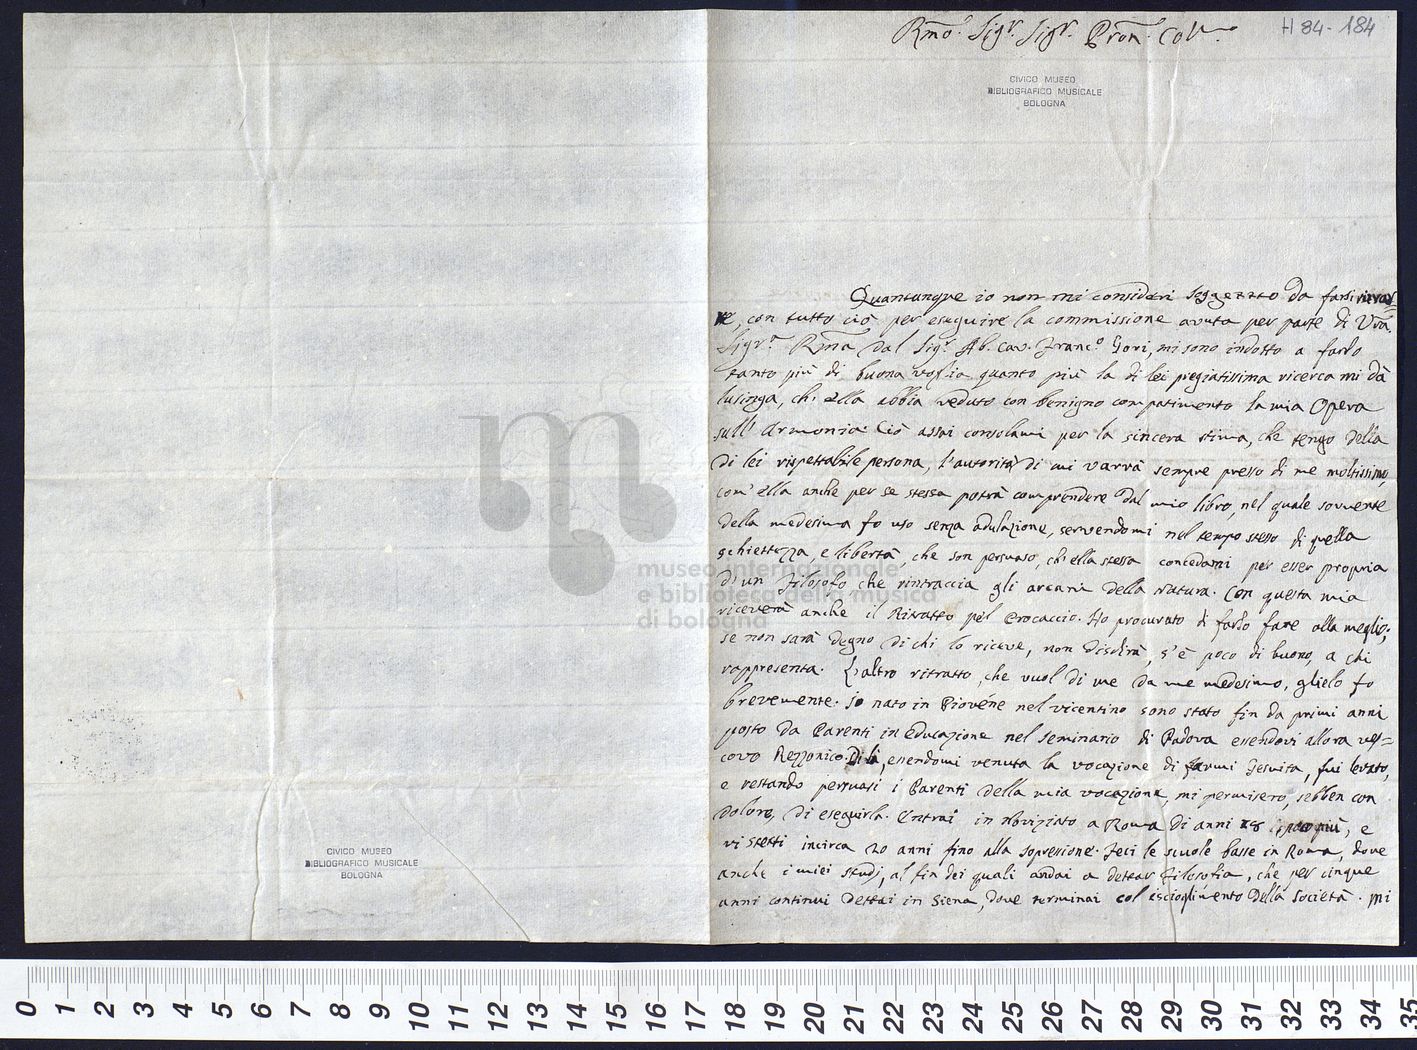 H 84-184
Rmo. Sigr. Sigr. Pron. Col
CIVICO MUSEO
BIBLIOGRAFICO MUSICALE
BOLOGNA
Quantunque io non mi consideri soggetto da farsi ritrar=
re, con tutto ciò per eseguire la commissione avuta per parte di Vra.
Sigra. Rma dal Sigr. Ab. Cav. Franco. Gori, mi sono indotto a farlo
tanto più di buona voglia quanto più la di lei pregiatissima ricerca mi dà
lusinga, ch' ella abbia veduto con benigno compatimento la mia Opera
sull' Armonia. Ciò assai consolami per la sincera stima, che tengo della
di lei rispettabile persona, l'autorità di cui varrà sempre presso di me moltissimo,
com' ella anche per se stessa potrà comprendere dal mio libro, nel quale sovvente
della medesima fo uso senza adulazione, servendomi nel tempo stesso di quella
schiettezza, e libertà, che son persuaso, ch' ella stessa concedami per esser propria
d' un Filosofo che rintraccia gli arcani della Natura. Con questa mia
riceverà anche il Ritratto pel Procaccio. Ho procurato di farlo fare alla meglio;
se non sarà degno di chi lo riceve, non disdirà, s' è poco di buono, a chi
rappresenta. L' altro ritratto, che vuol di me da me medesimo, glielo fo
brevemente. Io nato in Piovéne nel vicentino sono stato fin da primi anni
posto da Parenti in Educazione nel seminario di Padova essendovi allora ves=
covo Rezzonico. Di là, essendomi venuta la vocazione di farmi Gesuita, fui levato,
e restando persuasi i Parenti della mia vocazione, mi permisero, sebben con
dolore, di eseguirla. Entrai in Noviziato a Roma di anni 18 più, e
vi stetti incirca 20 anni fino alla sopresione. Feci le scuole basse in Roma, dove
anche i miei studj, al fin dei quali andai a dettar Filosofia, che per cinque
anni continui dettai in Siena, dove terminai col iscioglimento della Società. Mi
museo internazionale
e biblioteca della musica
di bologna
CIVICO MUSEO
BIBLIOGRAFICO MUSICALE
BOLOGNA
0 1 2 3 4 5 6 7 8 9 10 11 12 13 14 15 16 17 18 19 20 21 22 23 24 25 26 27 28 29 30 31 32 33 34 35